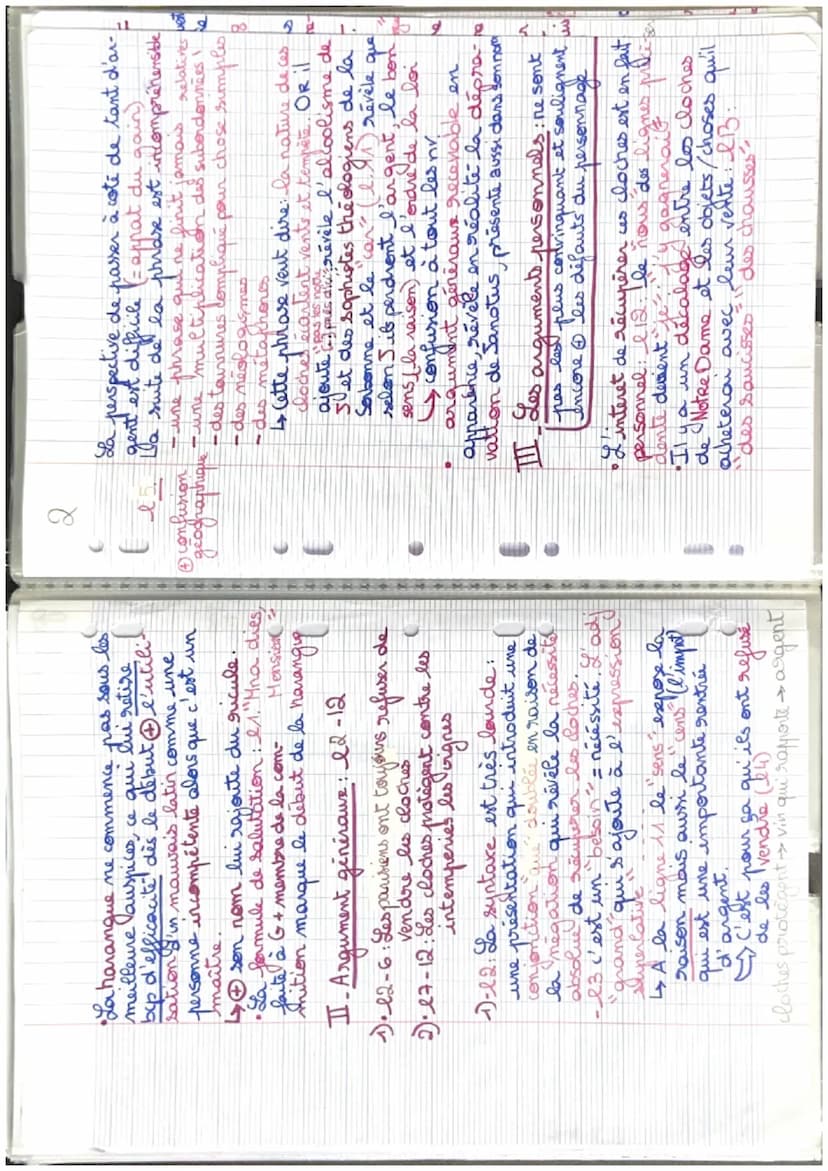 • La harangue ne commence pas sous les
meilleure auspices, ce qui lui retire
bcp d'efficacité dès le début ⊕ l'utili-
sation d'un mauvais latin comme une
personne incompétente alors que c'est un
maître.
↳ ⊕ son nom lui rajoute du ridicule.
• La formule de salutation : l1 "Mna dies,
faite à G + membre de la com- Monsieur"
munition marque le début de la harangue
II - Argument généraux : l2-12
1) • l2-6 : Les parisiens ont toujours refuser de
vendre les cloches
2) • l7-12 : Les cloches protègent contre les
intempéries les vignes
1) - l2 : La syntaxe est très lourde :
une présentation qui introduit une
conjonction "que" doublée en raison de
la négation qui révèle la nécessité
absolue de récupérer les cloches.
- l3 c'est un "besoin" = nécessité. L'adj
"grand" qui s'ajoute à l'expression
superlative
↳ A la ligne 11 le "sens" expose la
raison mais aussi le "cens" (l'impôt)
qui est une importante rentrée
d'argent.
↳ C'est pour ça qu'ils ont refusé
de les vendre (l4)
cloches protègent → vin qui rapporte → argent
2
La perspective de passer à côté de tant d'ar-
gent est difficile (= appat du gain)
l5
La suite de la phrase est incompréhensible
- une phrase qui ne finit jamais relatives
⊕ confusion géographique
- une multiplication des subordonnées
- des tournures compliqué pour chose simples
- des néologismes
- des métaphores
↳ Cette phrase veut dire : la nature de ces
cloches écartent vents et tempête. OR il
"pas les notre
ajoute révèle l'alcoolisme de
J et des sophistes théologiens de la
Sorbonne et le "car" (l11) révèle que
selon J ils perdront l'argent, le bon
sens (la raison) et l'ordre de la loi
↳ confusion à tout les nv
• argument généraux recevable en
apparence, révèle en réalité la dépra-
vation de Janotus, présente aussi dans son nom
III - Les arguments personnels : ne sont
pas les plus convainquant et soulignent
encore ⊕ les défauts du personnage
• L'intérêt de récupérer ces cloches est en fait
personnel : l12 : le "nous" des lignes précé-
dente devient "je" : "j'y gagnerait"
• Il y a un décalage entre les cloches
de Notre Dame et les objets/choses qu'il
achèterai avec leur vente : l13 :
"des saucisses" "des chausses"